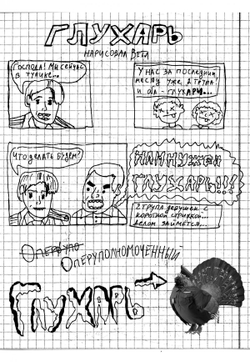 ГЛУХАРЬ
НАРИСОВАЛ ВЕТА
Господа! Мы сейчас
в тупике...
У нас за последний
месяц уже 2 трупа
и оба - глухари...
Что делать будем?
НАМ НУЖЕН
ГЛУХАРЬ!!!
2 трупа девушек с
короткой стрижкой.
делом займётся...
Оперупо
Оперуполномоченный
Глухарь